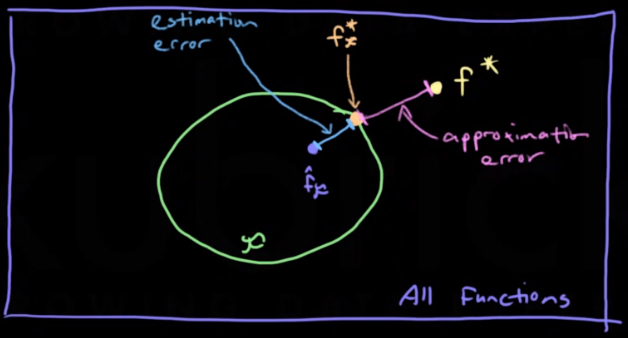 estimation
error
f*ℋ
f*
approximation
error
f̂ℋ
ℋ
All Functions